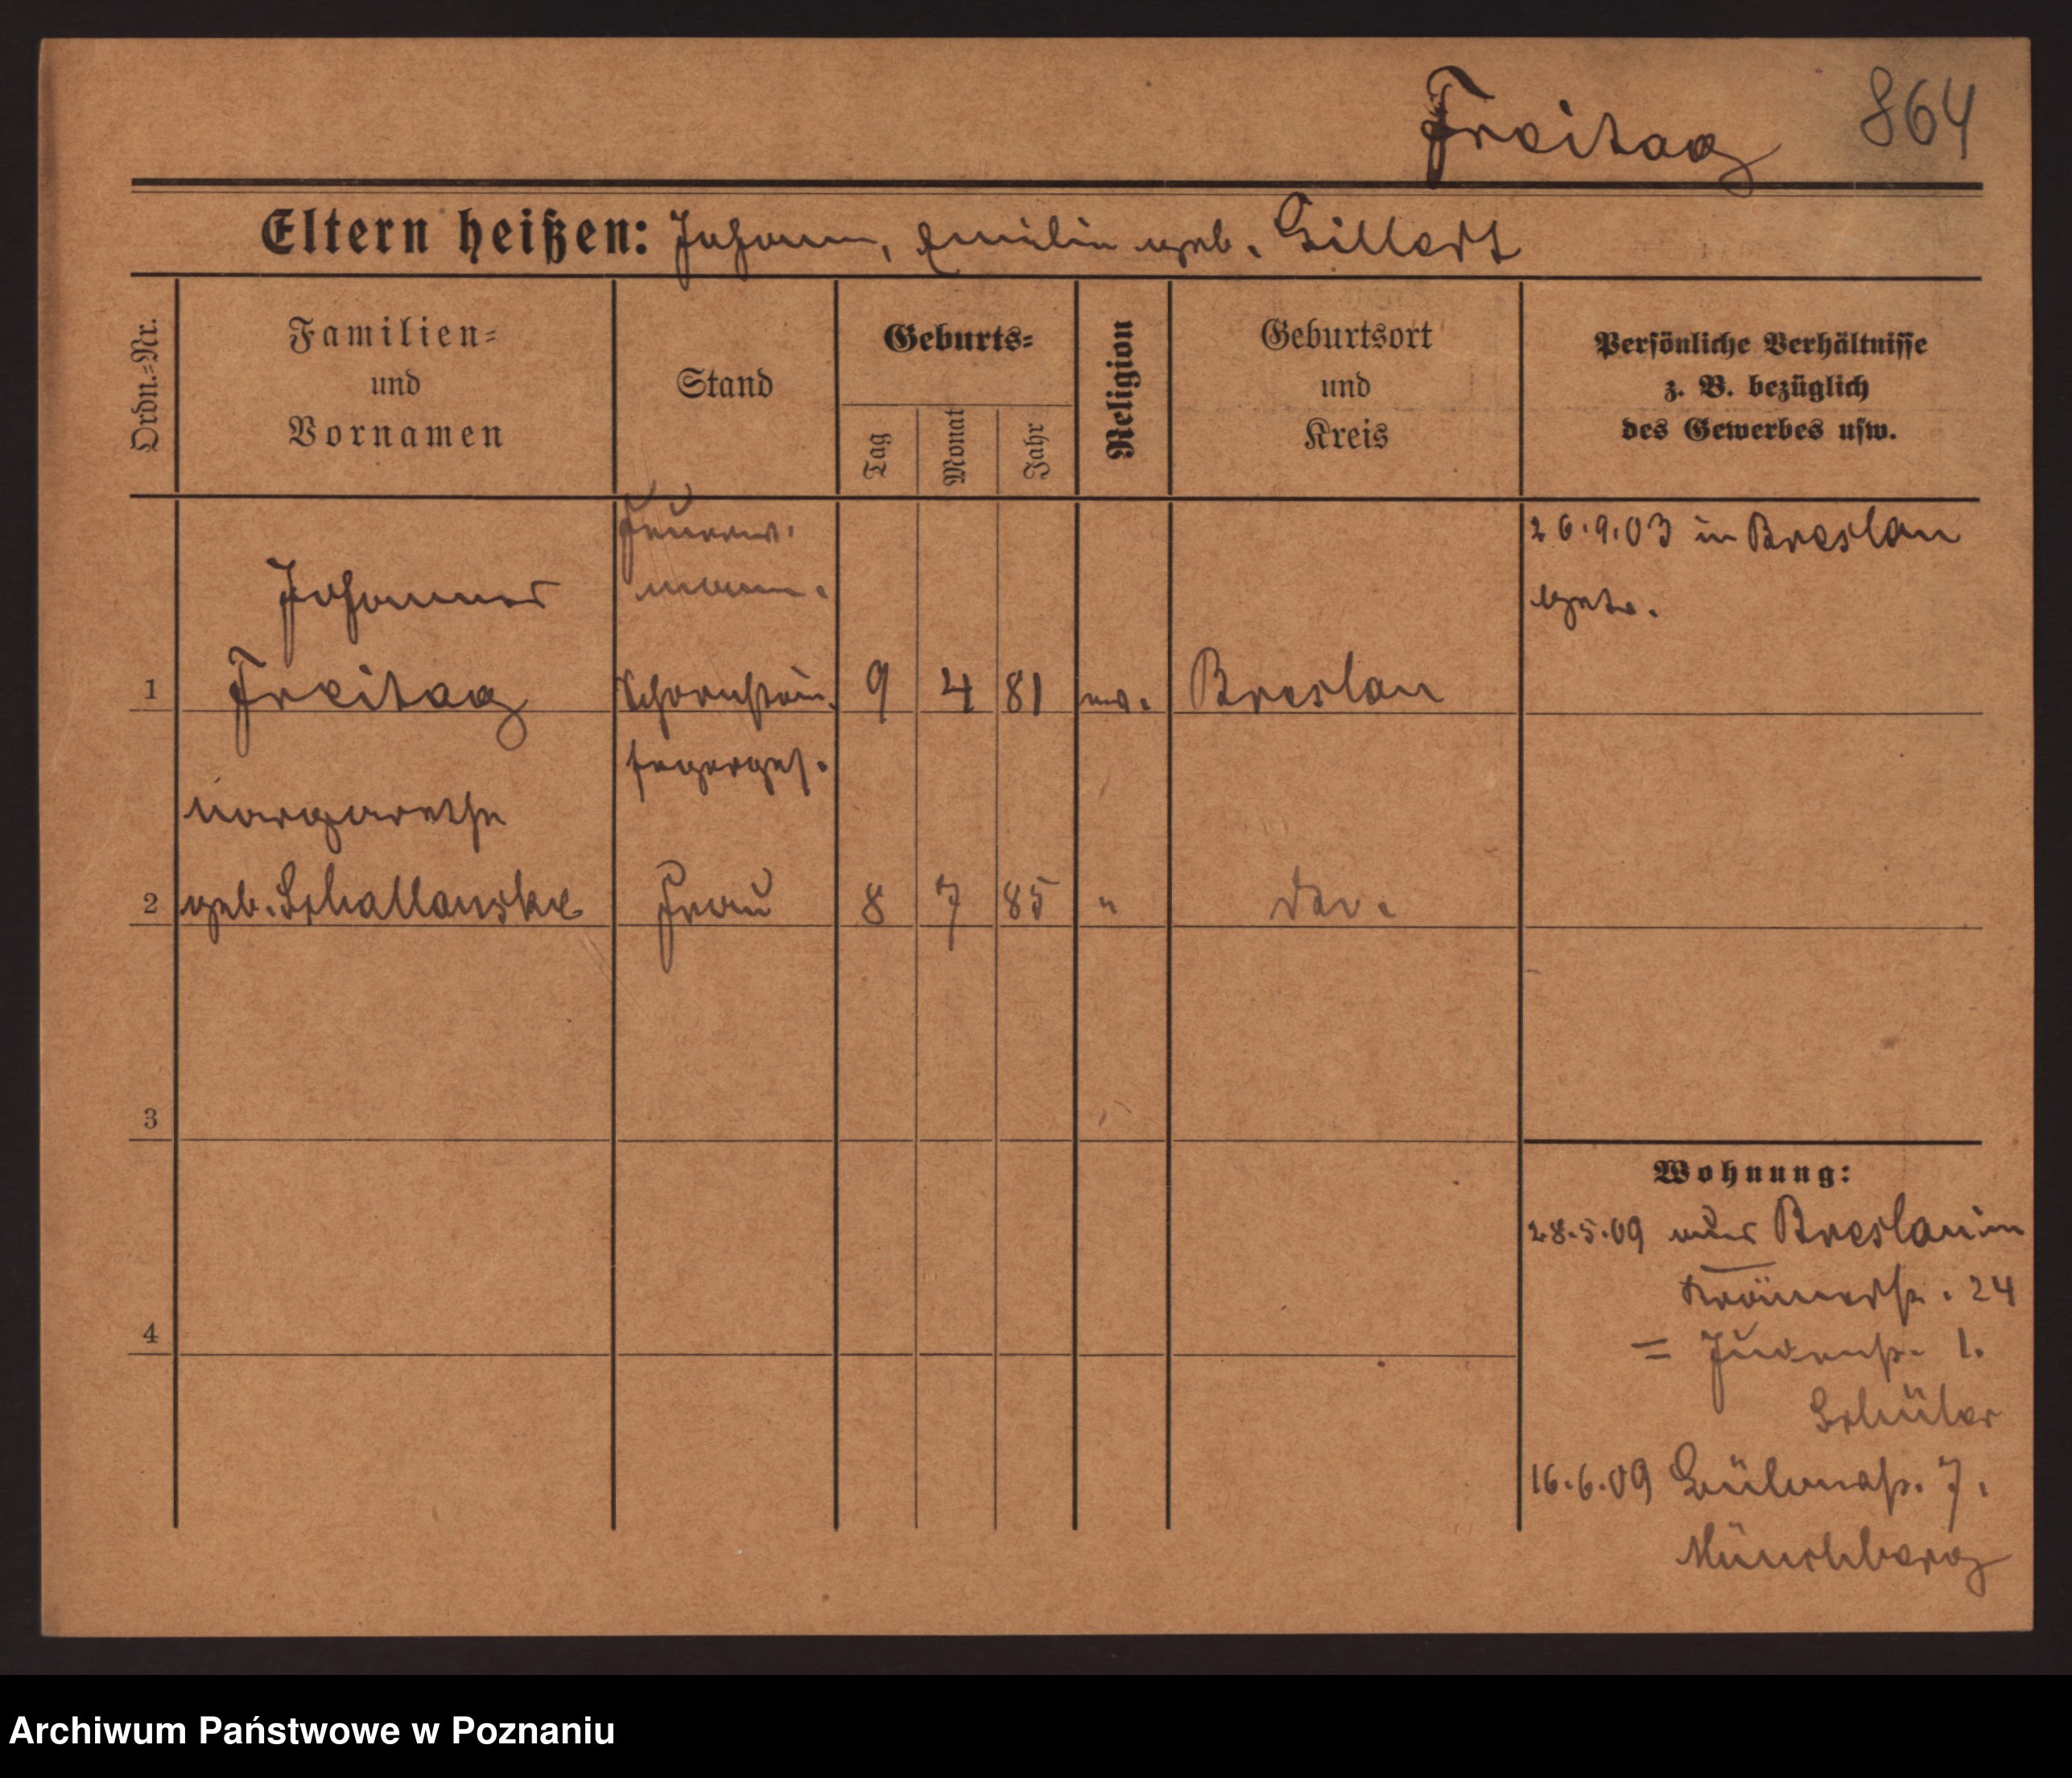 Freitag 864
Eltern heißen: Johann, Emilie geb. Gillert
Ordn.-Nr.
Familien-
und
Vornamen
Stand
Geburts-
Tag
Monat
Jahr
Religion
Geburtsort
und
Kreis
Persönliche Verhältnisse
z. B. bezüglich
des Gewerbes usw.
Feuerw.
mann.
26.9.03 in Breslau
getr.
Johannes
1 Freitag Schornstein. 9 4 81 ev. Breslau
fegerges.
Margarethe
2 geb. Schallanske Frau 8 7 85 " das.
3
4
Wohnung:
28.5.09 aus Breslau in
24
= Judenstr. 1.
Schüler
16.6.09 7.
Müncheberg
Archiwum Państwowe w Poznaniu